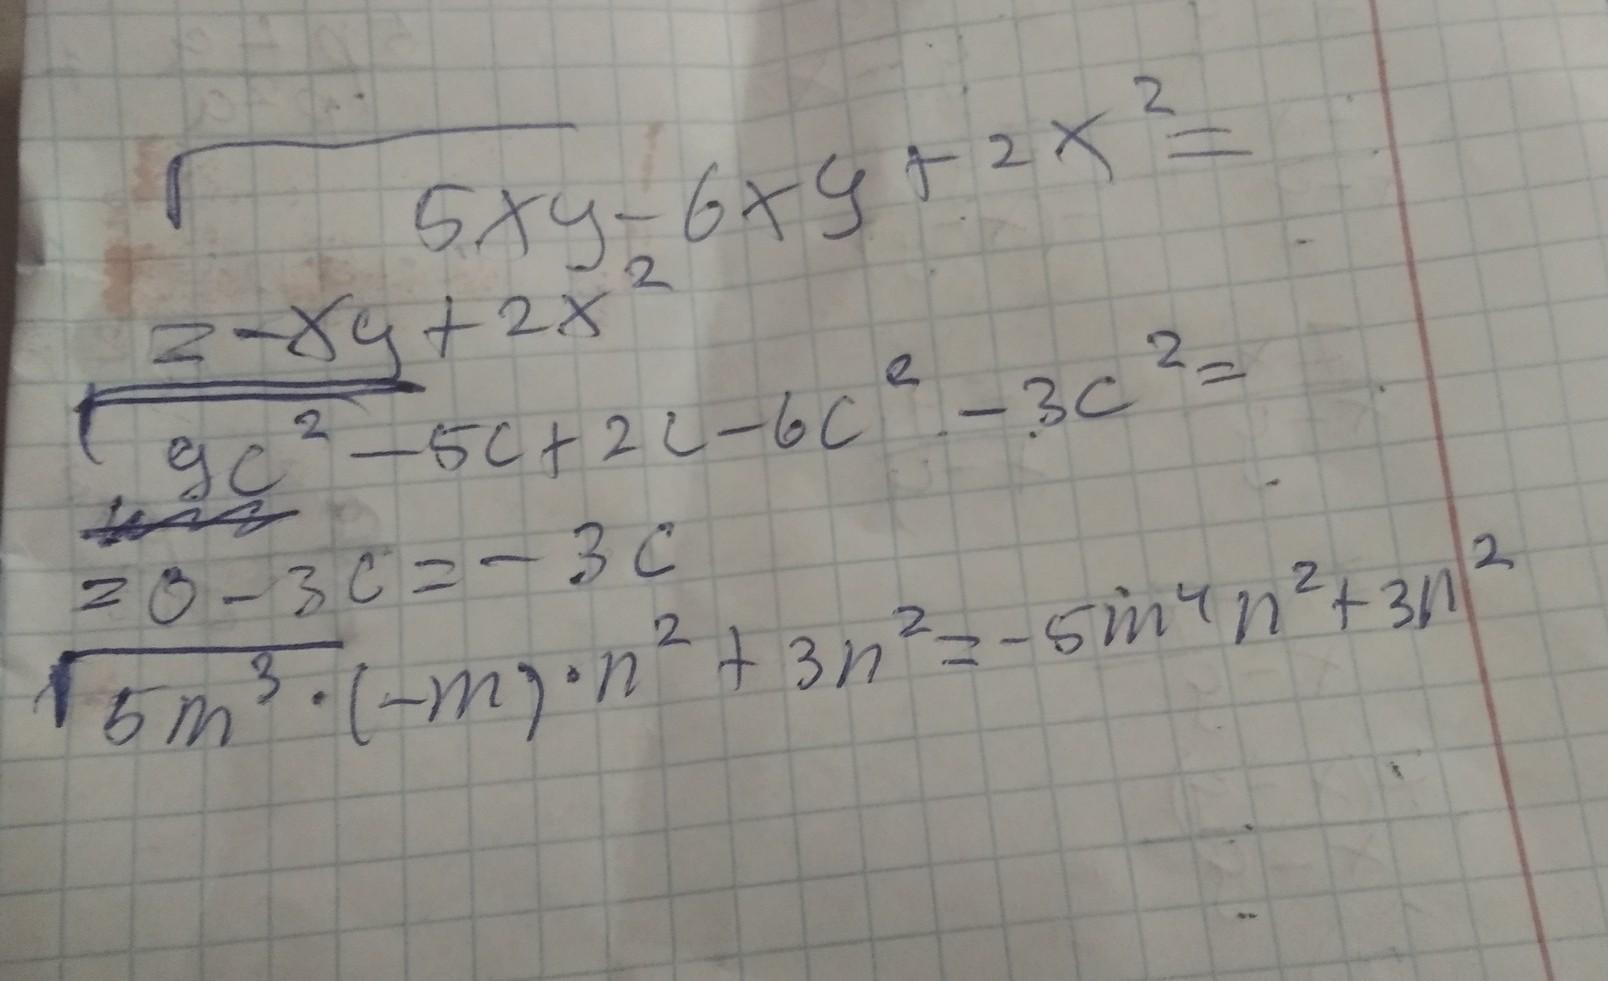 5xy-6xy+2x²=
=-xy+2x²
9c²-5c+2c-6c²-3c²=
=0-3c=-3c
5m³·(-m)·n²+3n²=-5m⁴n²+3n²